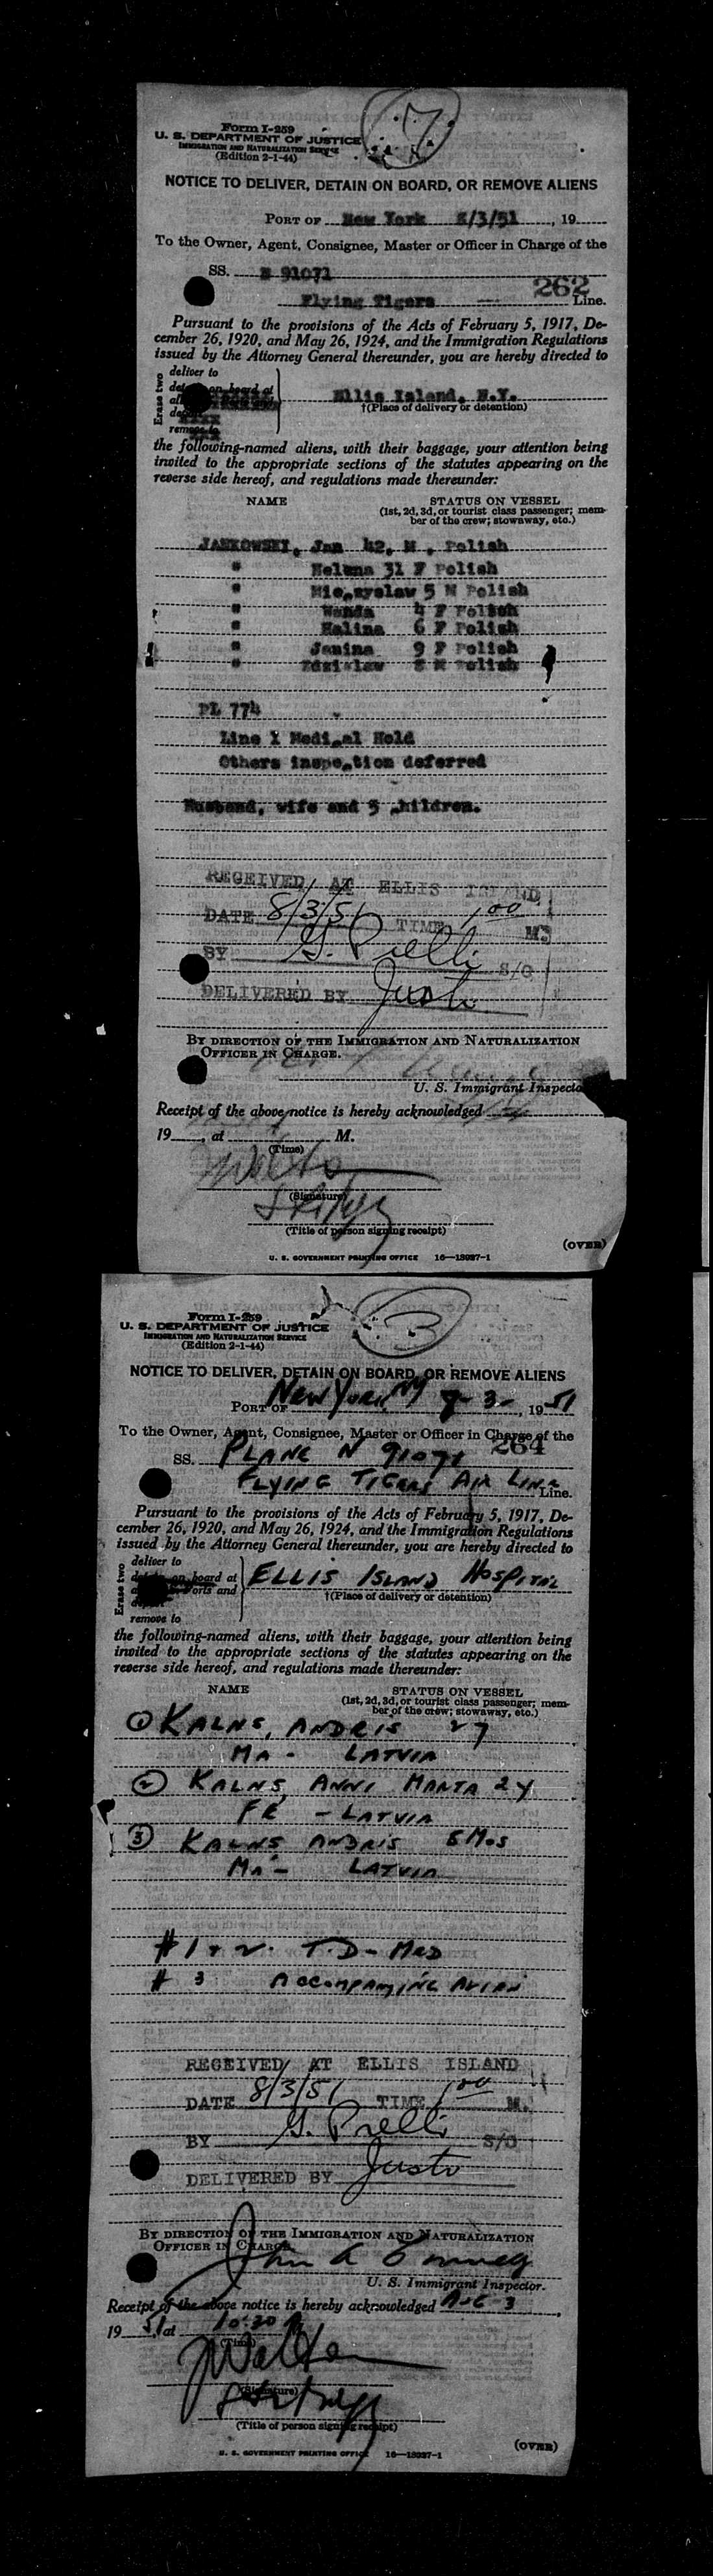 7
Form I-259
U. S. DEPARTMENT OF JUSTICE
IMMIGRATION AND NATURALIZATION SERVICE
(Edition 2-1-44)
NOTICE TO DELIVER, DETAIN ON BOARD, OR REMOVE ALIENS
PORT OF New York 8/3/51, 19
To the Owner, Agent, Consignee, Master or Officer in Charge of the
SS. N 91071
262
Flying Tigers Line.
Pursuant to the provisions of the Acts of February 5, 1917, De-
cember 26, 1920, and May 26, 1924, and the Immigration Regulations
issued by the Attorney General thereunder, you are hereby directed to
Erase two
deliver to
on board at
remove to
Ellis Island, N.Y.
†(Place of delivery or detention)
the following-named aliens, with their baggage, your attention being
invited to the appropriate sections of the statutes appearing on the
reverse side hereof, and regulations made thereunder:
NAME STATUS ON VESSEL
(1st, 2d, 3d, or tourist class passenger; mem-
ber of the crew; stowaway, etc.)
JANKOWSKI, Jan 42, M, Polish
" Helena 31 F Polish
" Mieczyslaw 5 M Polish
" Wanda 4 F Polish
" Halina 6 F Polish
" Janina 9 F Polish
" Zdzislaw 8 M Polish
PL 774
Line 1 Medical Hold
Others inspection deferred
Husband, wife and 5 children.
RECEIVED AT ELLIS ISLAND
DATE 8/3/51 TIME 1 00 M
BY G. Prelli S/O
DELIVERED BY Justo
BY DIRECTION OF THE IMMIGRATION AND NATURALIZATION
OFFICER IN CHARGE.
U. S. Immigrant Inspector
Receipt of the above notice is hereby acknowledged
19, at M.
(Time)
(Signature)
(Title of person signing receipt)
(OVER)
U. S. GOVERNMENT PRINTING OFFICE 16—13927-1
3
Form I-259
U. S. DEPARTMENT OF JUSTICE
IMMIGRATION AND NATURALIZATION SERVICE
(Edition 2-1-44)
NOTICE TO DELIVER, DETAIN ON BOARD, OR REMOVE ALIENS
PORT OF New York NY 8-3-, 1951
To the Owner, Agent, Consignee, Master or Officer in Charge of the
264
SS. PLANE N 91071
FLYING TIGERS AIR LINE Line.
Pursuant to the provisions of the Acts of February 5, 1917, De-
cember 26, 1920, and May 26, 1924, and the Immigration Regulations
issued by the Attorney General thereunder, you are hereby directed to
Erase two
deliver to
on board at
and
remove to
ELLIS ISLAND HOSPITAL
†(Place of delivery or detention)
the following-named aliens, with their baggage, your attention being
invited to the appropriate sections of the statutes appearing on the
reverse side hereof, and regulations made thereunder:
NAME STATUS ON VESSEL
(1st, 2d, 3d, or tourist class passenger; mem-
ber of the crew; stowaway, etc.)
① KALNS, ANDRIS 27
MA - LATVIA
② KALNS, ANNI MARTA 24
FE - LATVIA
③ KALNS ANDRIS 8 Mos
MA - LATVIA
# 1 + 2. T.D - MED
# 3 ACCOMPANYING ALIEN
RECEIVED AT ELLIS ISLAND
DATE 8/3/51 TIME 1 00 M.
BY G. Prelli S/O
DELIVERED BY Justo
BY DIRECTION OF THE IMMIGRATION AND NATURALIZATION
OFFICER IN CHARGE.
U. S. Immigrant Inspector.
Receipt of the above notice is hereby acknowledged AUG 3,
19 51 at 10:30
(Time)
J Walter
(Signature)
(Title of person signing receipt)
(OVER)
U. S. GOVERNMENT PRINTING OFFICE 16—13927-1